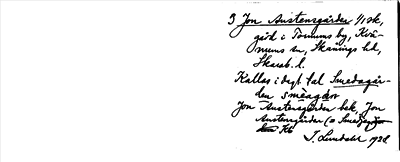 3 Jon Austensgården 1/1 ok,
gård i Tommus by, Kvä-
nums sn, Skånings hd,
Skarab. l.
Kallas i dagl. tal Smedagår-
den
Jon Austensgården bek, Jon
Austengården (o Smedjegår
J. Lundahl 1928